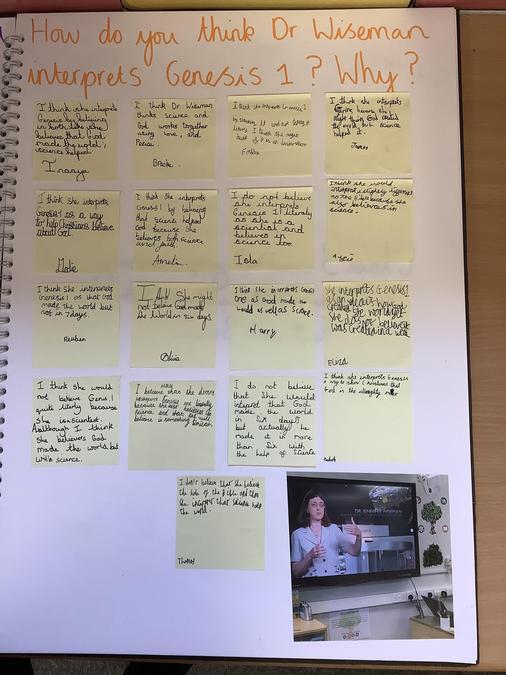 How do you think Dr Wiseman
interprets Genesis 1? Why?
I think she interprets
Genesis by believing
in both like she
believes that God
made the world,
science helped.
Inaya
I think Dr Wiseman
thinks science and
God works together
using love, and
Peace.
Brooke.
I think she interprets Genesis 1
by
I think she might
think of it as an
I think she interprets
God created
the world, but science
helped it.
James
I think she interprets
Genesis 1 as a way
to help Christians believe
about God.
I think she interprets
Genesis 1 by believing
that science helped
God because she
believes both science
Amelia.
I do not believe
she interprets
Genesis 1 literally
as she is a
scientist and
believes in
science too.
Isla
I think she would
interpret slightly different
to the Bible because she
also believes in
science.
I think she interprets
Genesis 1 as that God
made the world but
not in 7 days.
Reuben
I think She might
not believe God made
the World in six days
Olivia
I think she interprets Genesis
one as God made the
world as well as Science.
Harry
She interprets Genesis 1
God
created the world yet
she does not believe it
was created in a week
Eliza
I think she would
not believe Genus.1
quite literly because
she is a scientest.
Aalthough I think
she believers God
made the world but
with science.
I believe that she
science and
believe in something
I do not believe
that She Would
interpret that God
made the World
in Six days
but actually he
made it in more
than Six with
the help of Science
I think she interprets Genesis
a way to show Christians that
God is the almighty
I don't believe that she believes
the hole of the Bible and
she interprets that Science help
the world.
Thomas
DR JENNIFER WISEMAN